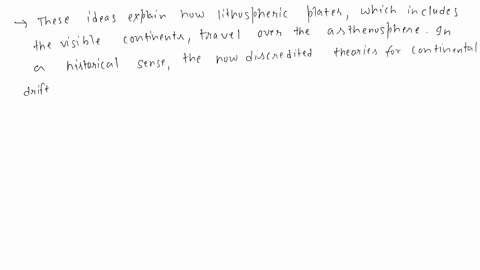 → These ideas explain how lithospheric plates, which includes
the visible continents, travel over the asthenosphere. In
a historical sense, the now discredited theories for continental
drift